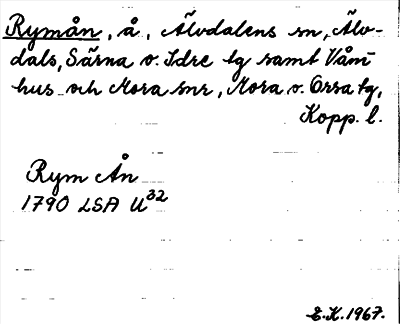 Rymån, å, Älvdalens sn, Älv-
dals, Särna o. Idre tg samt Våm-
hus och Mora snr, Mora o. Orsa tg,
Kopp. l.
Rym Ån
1790 LSA U32
E.K. 1967.